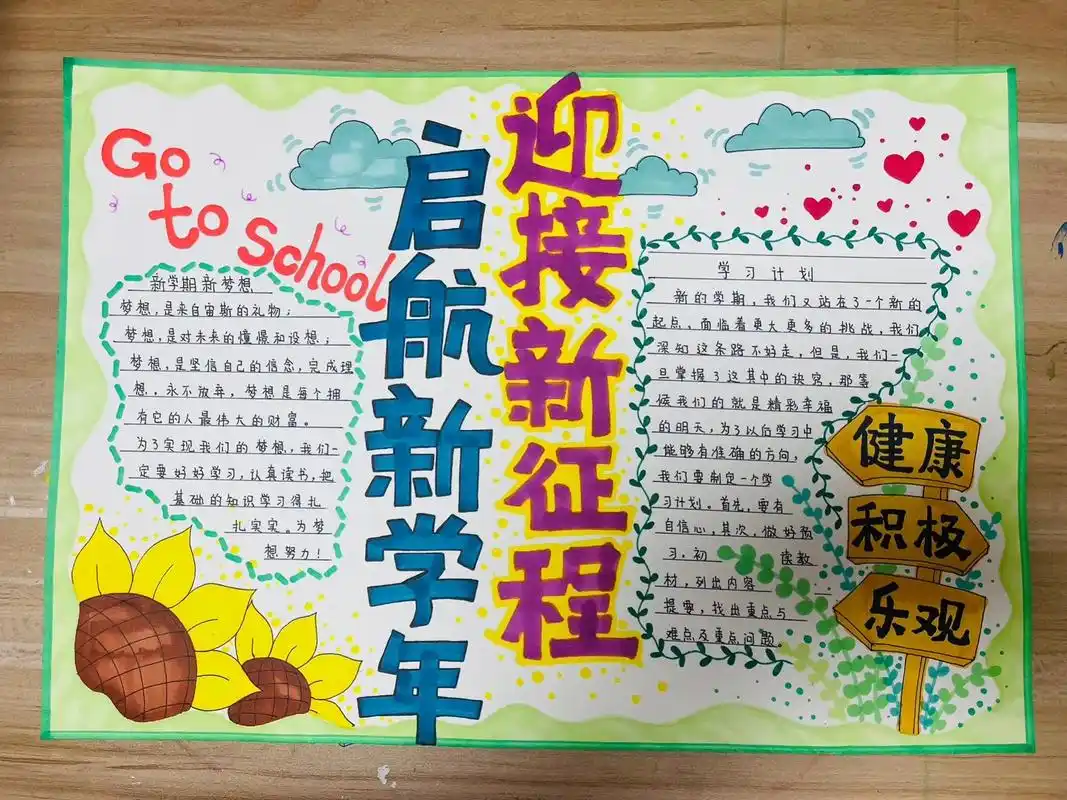 Go
to School
启航新学年
迎接新征程
新学期新梦想
梦想,是来自宙斯的礼物;
梦想,是对未来的憧憬和设想;
梦想,是坚信自己的信念,完成理
想,永不放弃,梦想是每个拥
有它的人最伟大的财富。
为了实现我们的梦想,我们一
定要好好学习,认真读书,把
基础的知识学习得扎
扎实实。为梦
想努力!
学习计划
新的学期,我们又站在了一个新的
起点,面临着更大更多的挑战,我们
深知这条路不好走,但是,我们一
旦掌握了这其中的诀窍,那等
候我们的就是精彩幸福
的明天,为了以后学习中
能够有准确的方向,
我们要制定一个学
习计划。首先,要有
自信心,其次,做好预
习,初 读教
材,列出内容
提要,找出重点与
难点及重点问题。
健康
积极
乐观